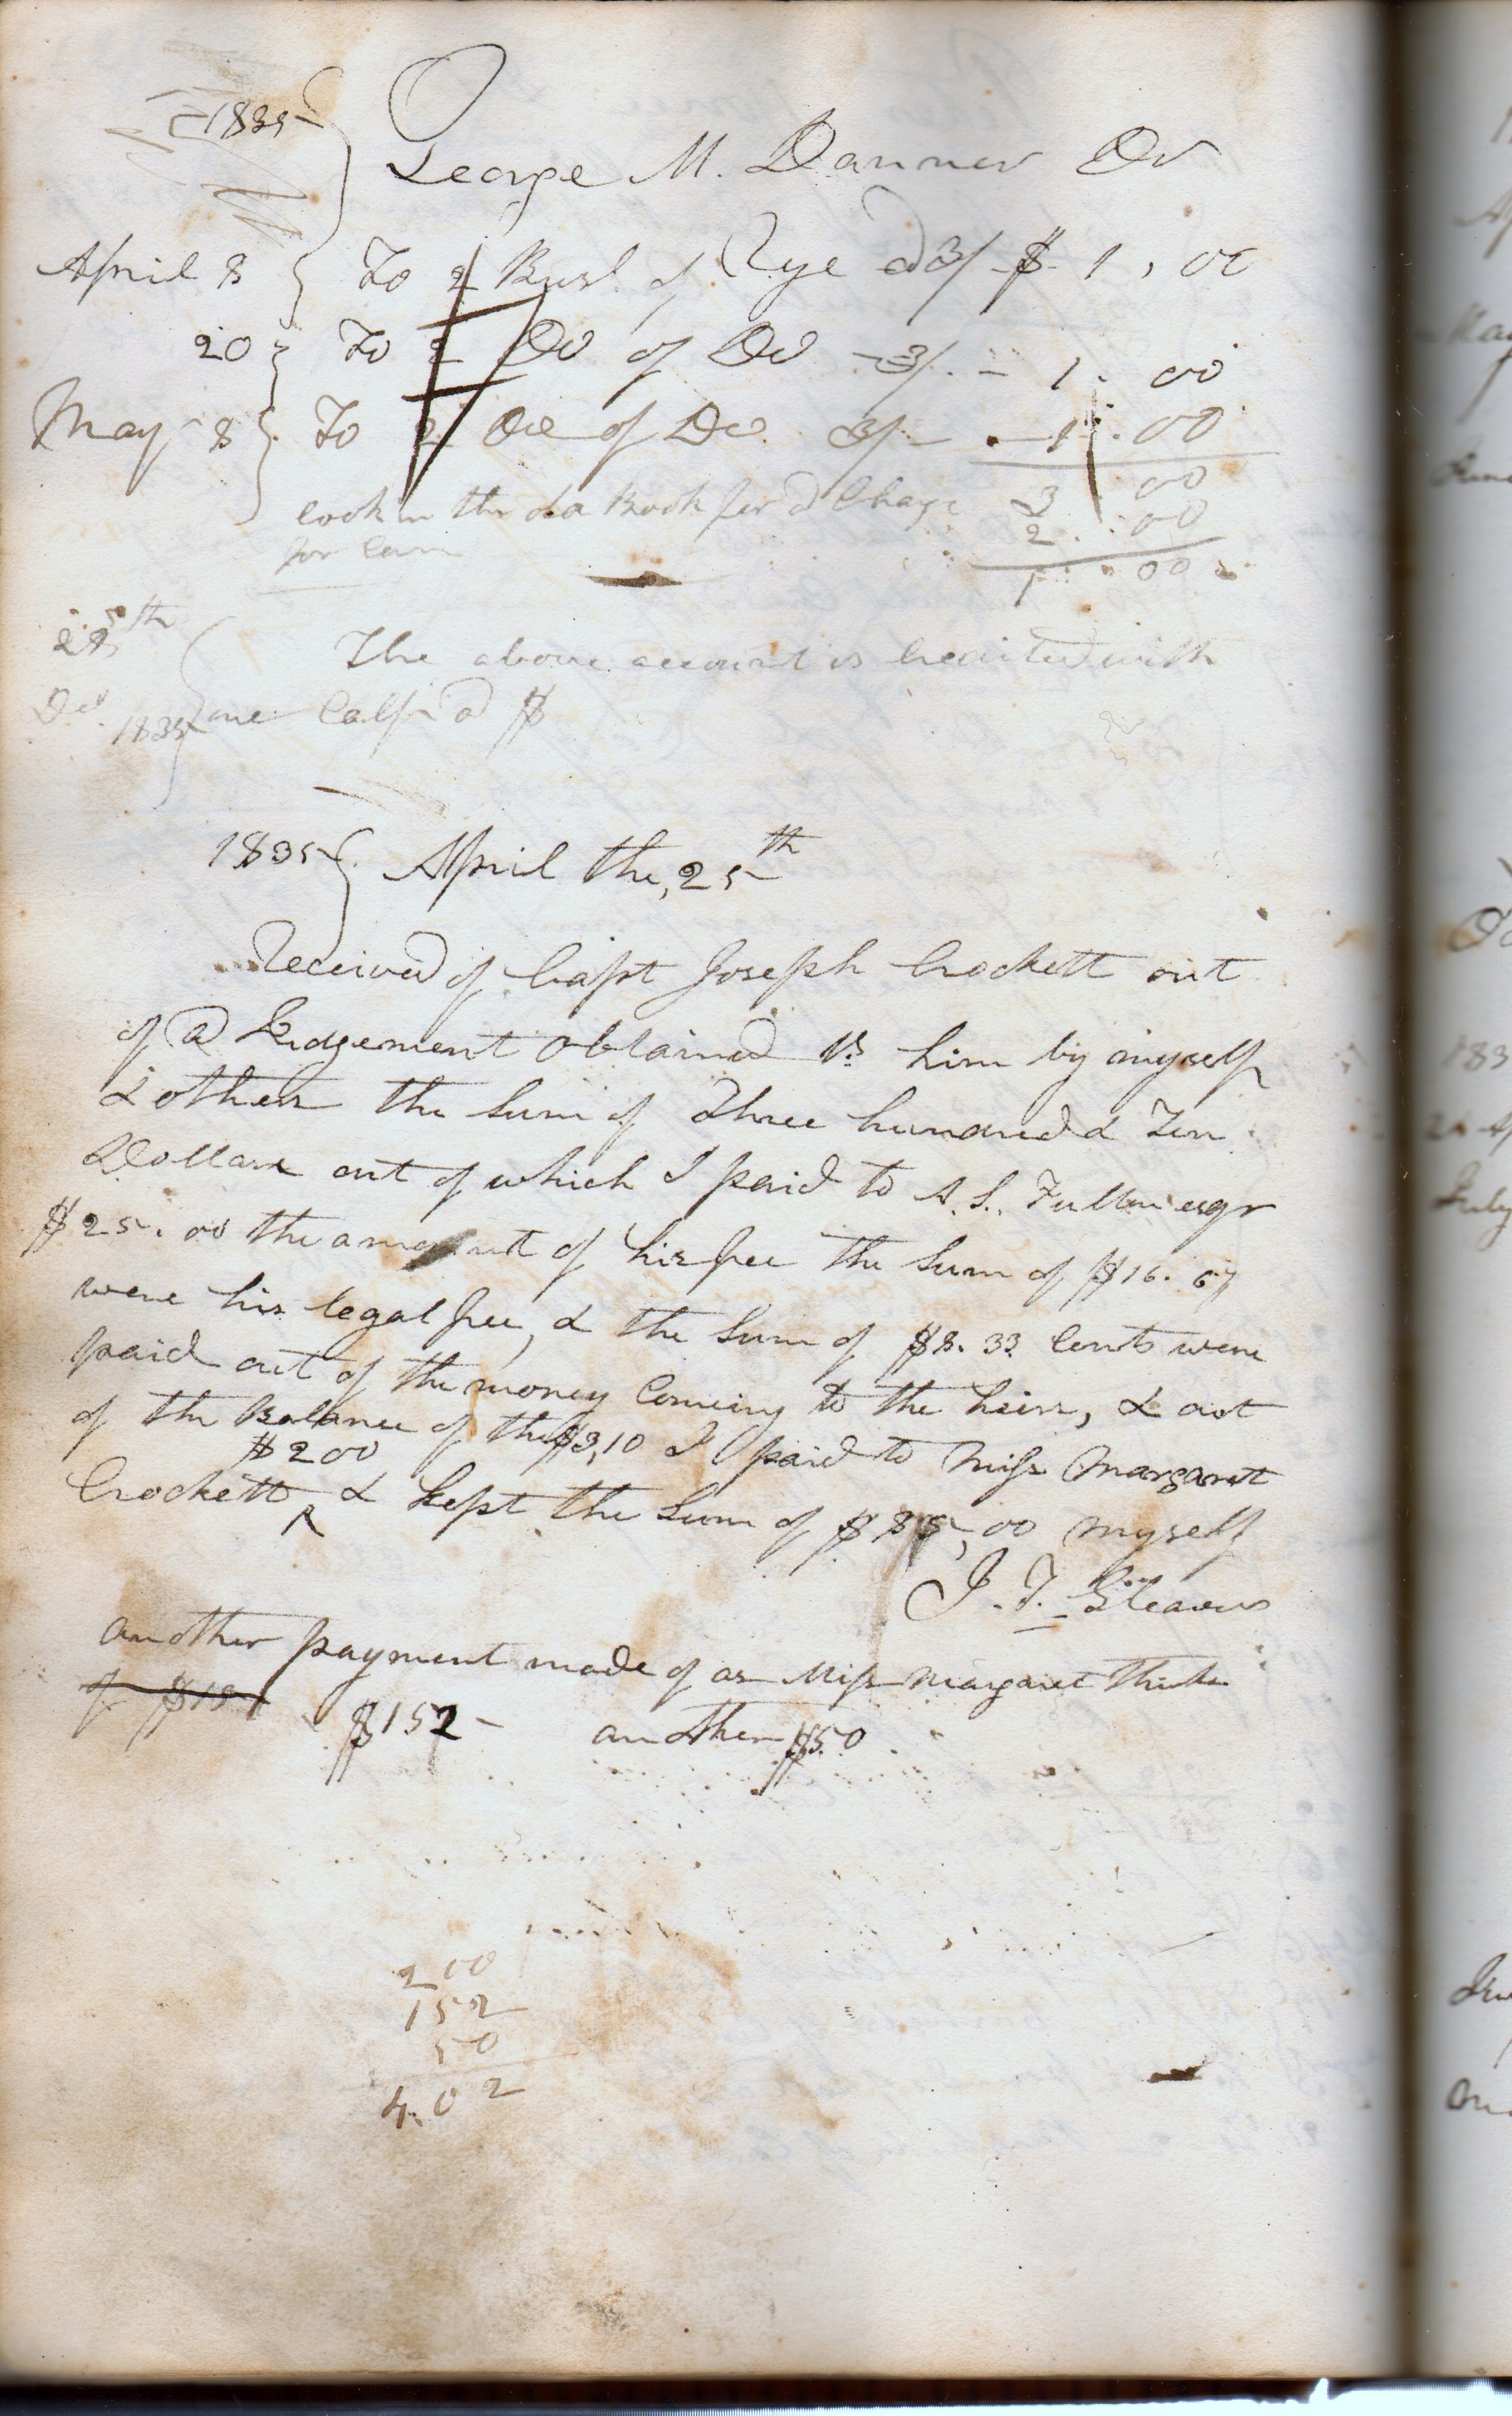 1835
George M. Danner Dr
April 8 To 2 Bush of Rye @ 3/ $ 1,00
20 To 2 Do of Do 3/. - 1.00
May 8 To 2 Do of Do 3/- 1.00
look in the Book for a Charge 3 00
2..00
for
1.00
25th The above account is credited with
Dec. 1835 one Calf @ $
1835 April the, 25th
Received of Capt Joseph Crockett out
of a Judgement obtained vs him by myself
& others the Sum of Three hundred & Ten
Dollars out of which I paid to A. S. Fulton esqr
$25.00 the amount of his fee the Sum of $16.67
were his legal fee, & the Sum of $8.33 Cents were
paid out of the money Comeing to the heirs, & out
of the Balance of the $3,10 I paid to Miss Margaret
$200
Crockett & kept the Sum of $85,00 myself
J. T. Gleaves
another payment made of as Miss Margaret thinks
of $151
$152- another $50
200
152
50
402
April
May
183
July